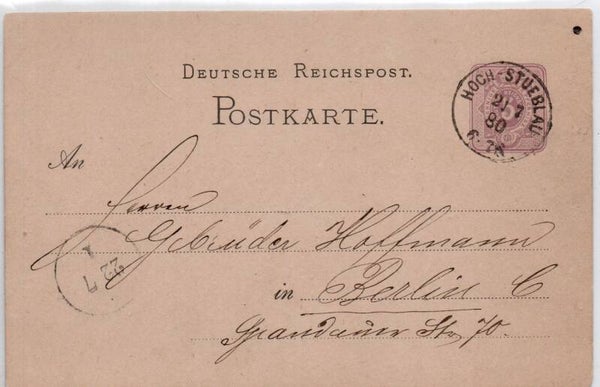 DEUTSCHE REICHSPOST.
POSTKARTE.
HOCH-STUEBLAU
21 7
80
6-7N
An
Herren
Gebrüder Hoffmann
in Berlin C
Spandauer Str 70.
22 7
1